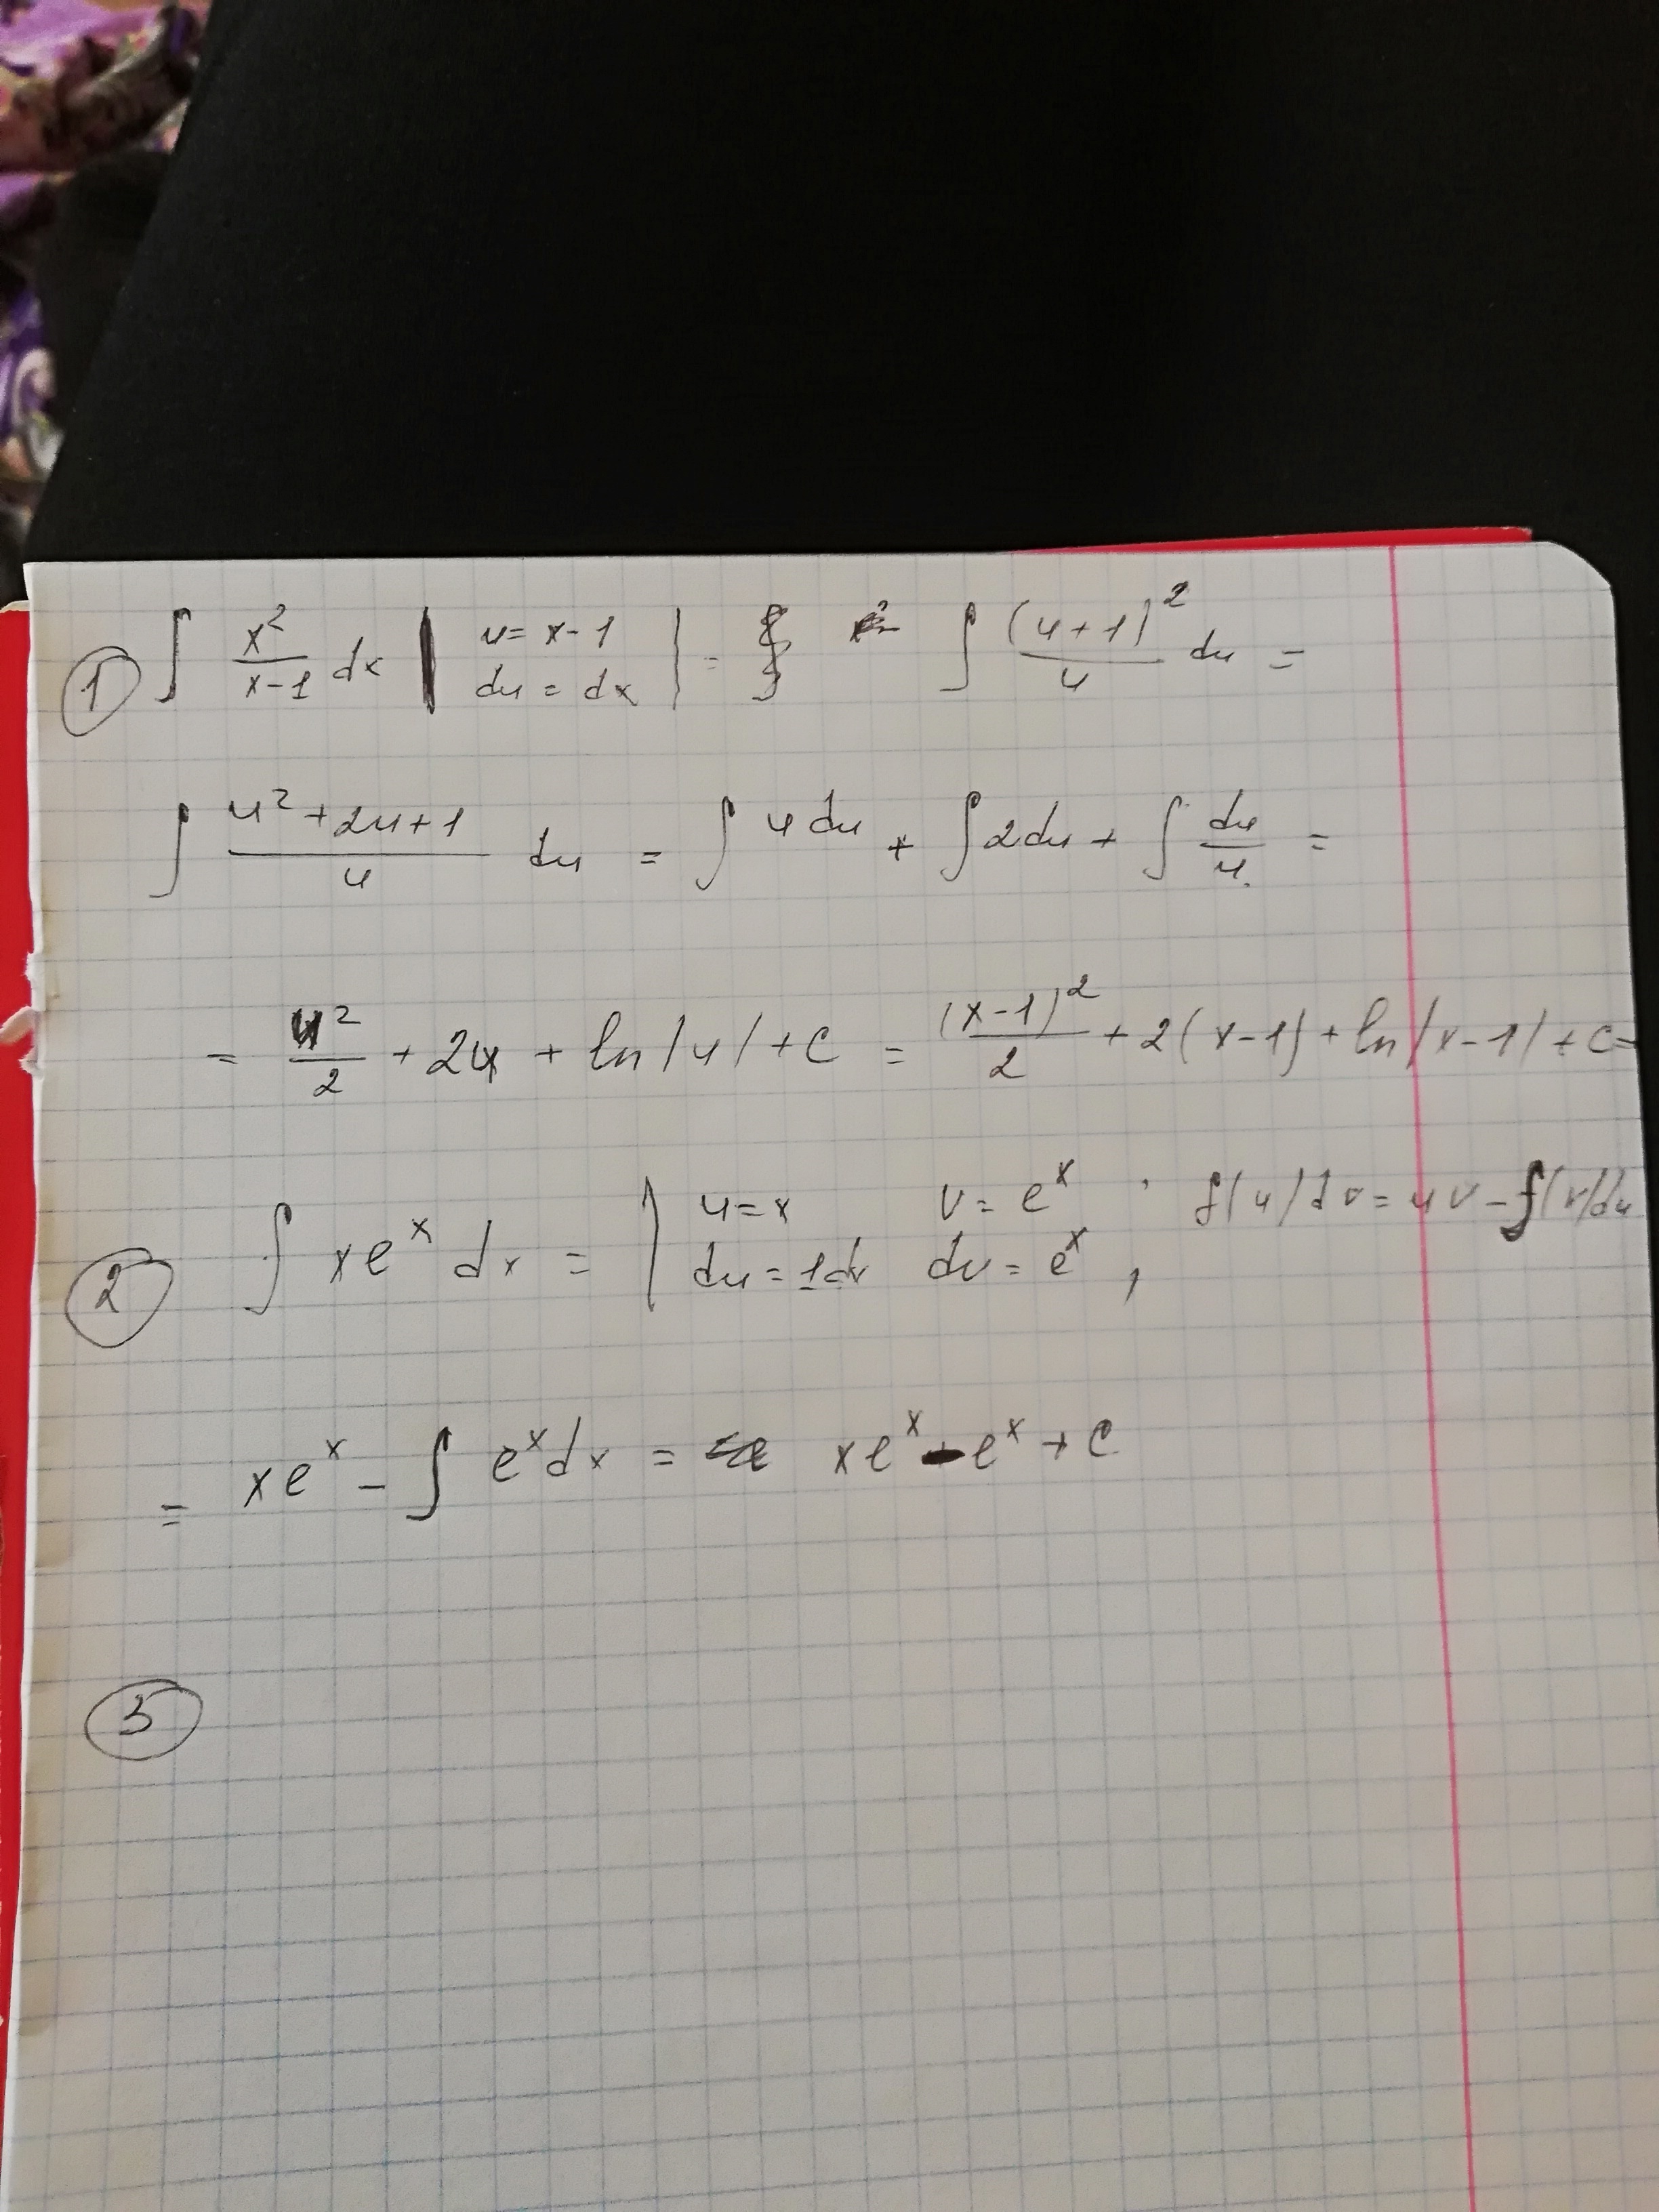 ① ∫ x²/(x-1) dx | u = x-1 du = dx | = ∫ (u+1)²/u du =
∫ (u²+2u+1)/u du = ∫ u du + ∫ 2du + ∫ du/u =
= u²/2 + 2u + ln|u| + C = (x-1)²/2 + 2(x-1) + ln|x-1| + C =
② ∫ xeˣ dx = | u=x v = eˣ du = 1dx dv = eˣ , ∫(u)dv = uv - ∫(v)du
= xeˣ - ∫ eˣdx = xeˣ - eˣ + C
③